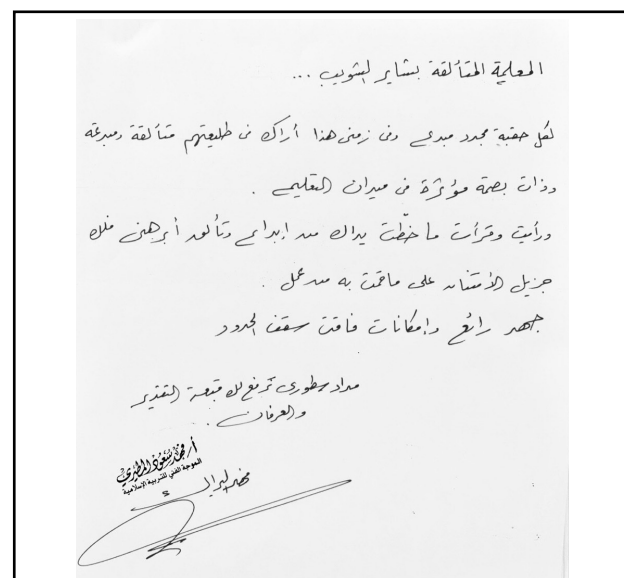 المعلمة المتألقة بشاير الشويب ...
لكل حقبة مجدد مبدع وفي زمني هذا أراك في طليعتهم متألقة ومبدعة
وذات بصمة مؤثرة في ميدان التعليم .
ورأيت وقرأت ما خطّت يداك من إبداع وتألق أبهرني فلك
جزيل الأمتنان على ما قمت به من عمل .
جهد رائع وإمكانات فاقت سقف الحدود
مداد سطوري ترفع لك قبعة التقدير
والعرفان .
أ. فهد سعود المطيري
الموجه الفني للتربية الإسلامية